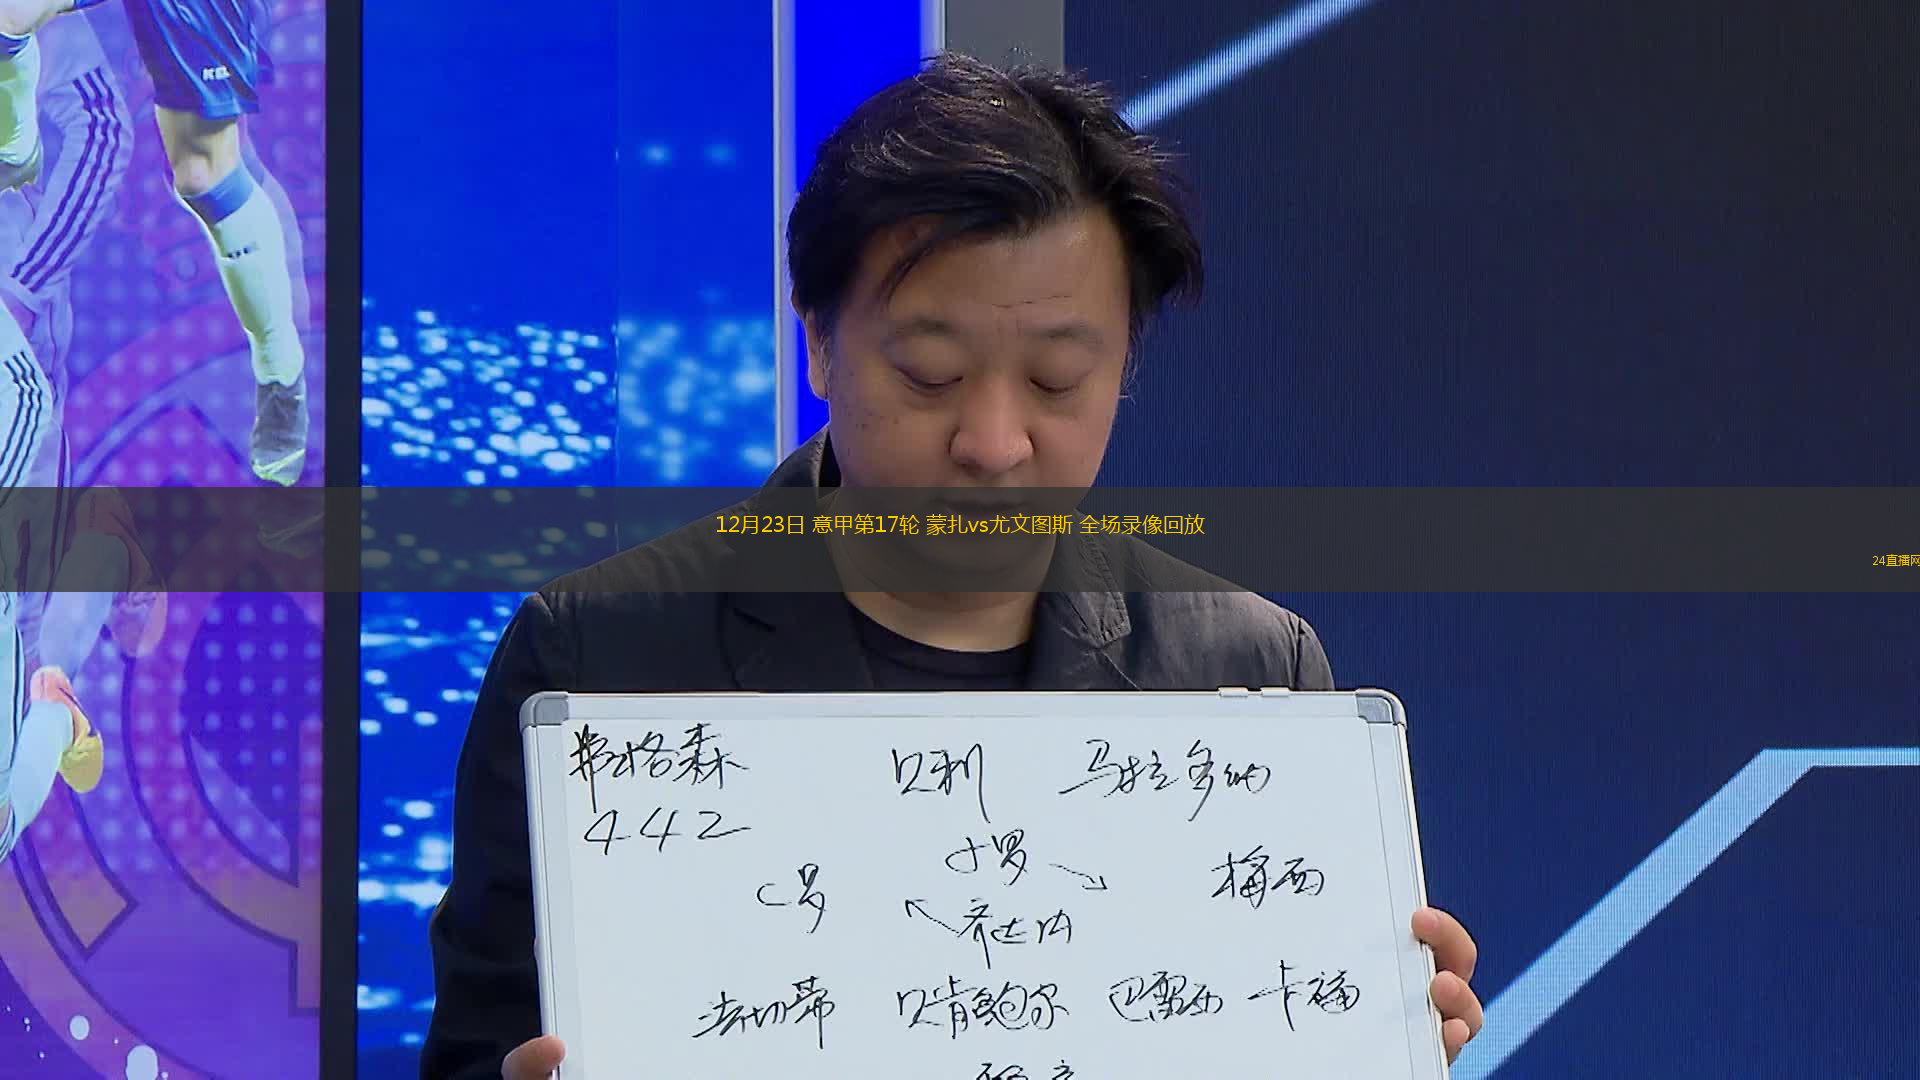 12月23日 意甲第17轮 蒙扎vs尤文图斯 全场录像回放
24直播网
弗格森 贝利 马拉多纳
442
小罗
C罗 梅西
齐达内
法切蒂 贝肯鲍尔 巴雷西 卡福